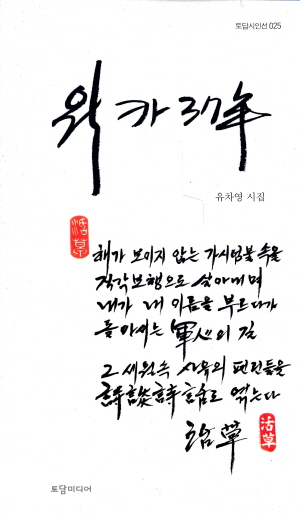 토담시인선 025
워카 37年
유차영 시집
活草
해가 보이지 않는 가시덤불 속을
직각보행으로 살아내며
내가 내 이름을 부르다가
돌아서는 軍人의 길
그 세월 속 사유의 편린들을
詩談詩話로 엮는다
活草
活草
토담미디어